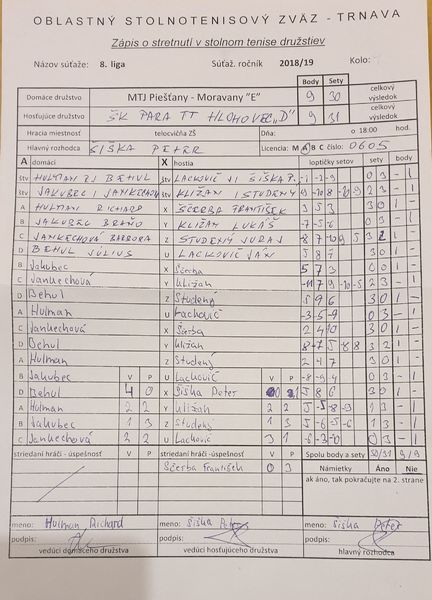 OBLASTNÝ STOLNOTENISOVÝ ZVÄZ - TRNAVA
Zápis o stretnutí v stolnom tenise družstiev
Názov súťaže: 8. liga Súťaž. ročník 2018/19 Kolo:
Body Sety
Domáce družstvo MTJ Piešťany - Moravany "E" 9 30 celkový výsledok
Hosťujúce družstvo ŠK PARA TT HLOHOVEC „D" 9 31 celkový výsledok
Hracia miestnosť telocvičňa ZŠ Dňa: o 18:00 hod.
Hlavný rozhodca ŠIŠKA PETER Licencia: M A B C číslo: 0605
A domáci X hostia loptičky setov sety body
štv HULMAN RI BEHUL štv LACKOVIČ VI ŠIŠKA P. 03 - 1
štv JAKUBEC I JANKECHOVÁ štv KLIŽAN I STUDENÝ 23 - 1
A HULMAN RICHARD X ŠČERBA FRANTIŠEK 3 5 3 30 1 -
B JAKUBEC BRAŇO Y KLIŽAN LUKÁŠ -7 -5 -6 03 - 1
C JANKECHOVÁ BARBORA Z STUDENÝ JURAJ 32 1 -
D BEHUL JÚLIUS U LACKOVIČ JÁN 5 8 7 30 1 -
B Jakubec X Ščerba 5 7 3 1 -
C Jankechová Y Kližan 23 - 1
D Behul Z Studený 5 9 6 30 1 -
A Hulman U Lackovič -3 -5 -9 03 - 1
C Jankechová X Ščerba 2 4 10 30 1 -
D Behul Y Kližan 32 1 -
A Hulman Z Studený 2 4 7 30 1 -
B Jakubec U Lackovič -8 -9 -4 03 - 1
D Behul 4 0 X Šiška Peter 5 8 6 30 1 -
A Hulman 2 2 Y Kližan 2 2 5 -5 -8 -9 13 - 1
B Jakubec 1 3 Z Studený 1 3 5 -6 -5 -6 13 - 1
C Jankechová 2 2 U Lackovič 3 1 -6 -3 -10 03 - 1
striedaní hráči - úspešnosť V P striedaní hráči - úspešnosť V P Spolu body a sety 30/31 9/9
Ščerba František 0 3 Námietky Áno Nie
ak áno, tak pokračujte na 2. strane
meno: Hulman Richard meno: Šiška Peter meno: Šiška Peter
podpis: podpis: podpis:
vedúci domáceho družstva vedúci hosťujúceho družstva hlavný rozhodca